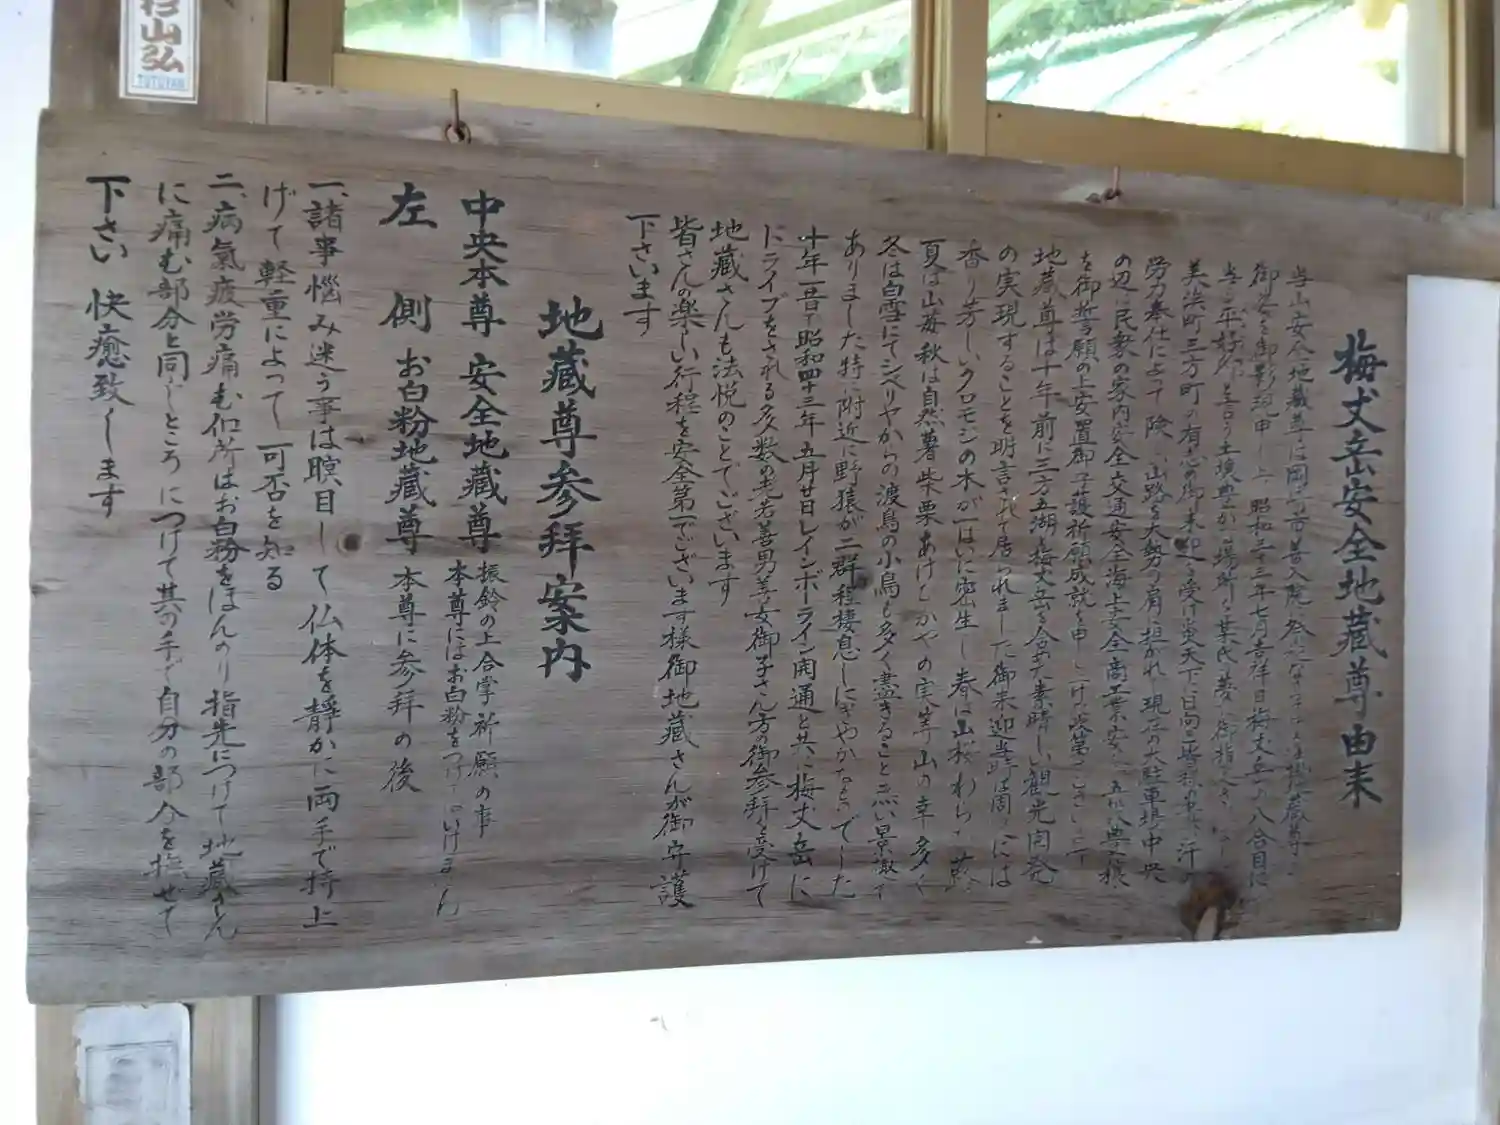 梅丈岳安全地蔵尊由来
当山安全地蔵尊は
昭和三十三年七月吉祥日梅丈岳の八合目に
当る平 と言う土壌豊か 場所を
美浜町三方町の有志の御来迎を受け炎天下
労力奉仕によって険 山路を大勢の肩に担がれ現在の大駐車場中央
の辺に民衆の家内安全交通安全海上安全商工業
を御誓願の上安置 護祈願成就を申
地蔵尊は十年前に三方五湖と梅丈岳を含めた素晴しい観光開発
の実現することを明言されて居られました御来迎当時は周りには
香り芳しいクロモジの木が一ぱいに密生し春は山桜わらび
夏は山苺秋は自然薯柴栗あけびかやの実等山の幸多く
冬は白雪にてシベリヤからの渡鳥の小鳥も多く盡きること無い景
ありました特に附近に野猿が二群程棲息しにぎやかなとでした
十年一昔 昭和四十三年五月廿日レインボーライン開通と共に梅丈岳に
ドライブをされる多数の老若善男善女御子さん方の御参拝を受けて
地蔵さんも法悦のことでございます
皆さんの楽しい行程を安全第一でございます様御地蔵さんが御守護
下さいます
地蔵尊参拝案内
中央本尊 安全地蔵尊 振鈴の上合掌祈願の事
本尊にはお白粉をつけてはいけません
左側 お白粉地蔵尊 本尊に参拝の後
一、諸事悩み迷う事は瞑目して仏体を靜かに両手で持上
げて軽重によって可否を知る
二、病氣疲労痛む個所はお白粉をほんのり指先につけて地蔵さん
に痛む部分と同じところにつけて其の手で自分の部分を撫せて
下さい 快癒致します
杉山弘
TUTUYAN